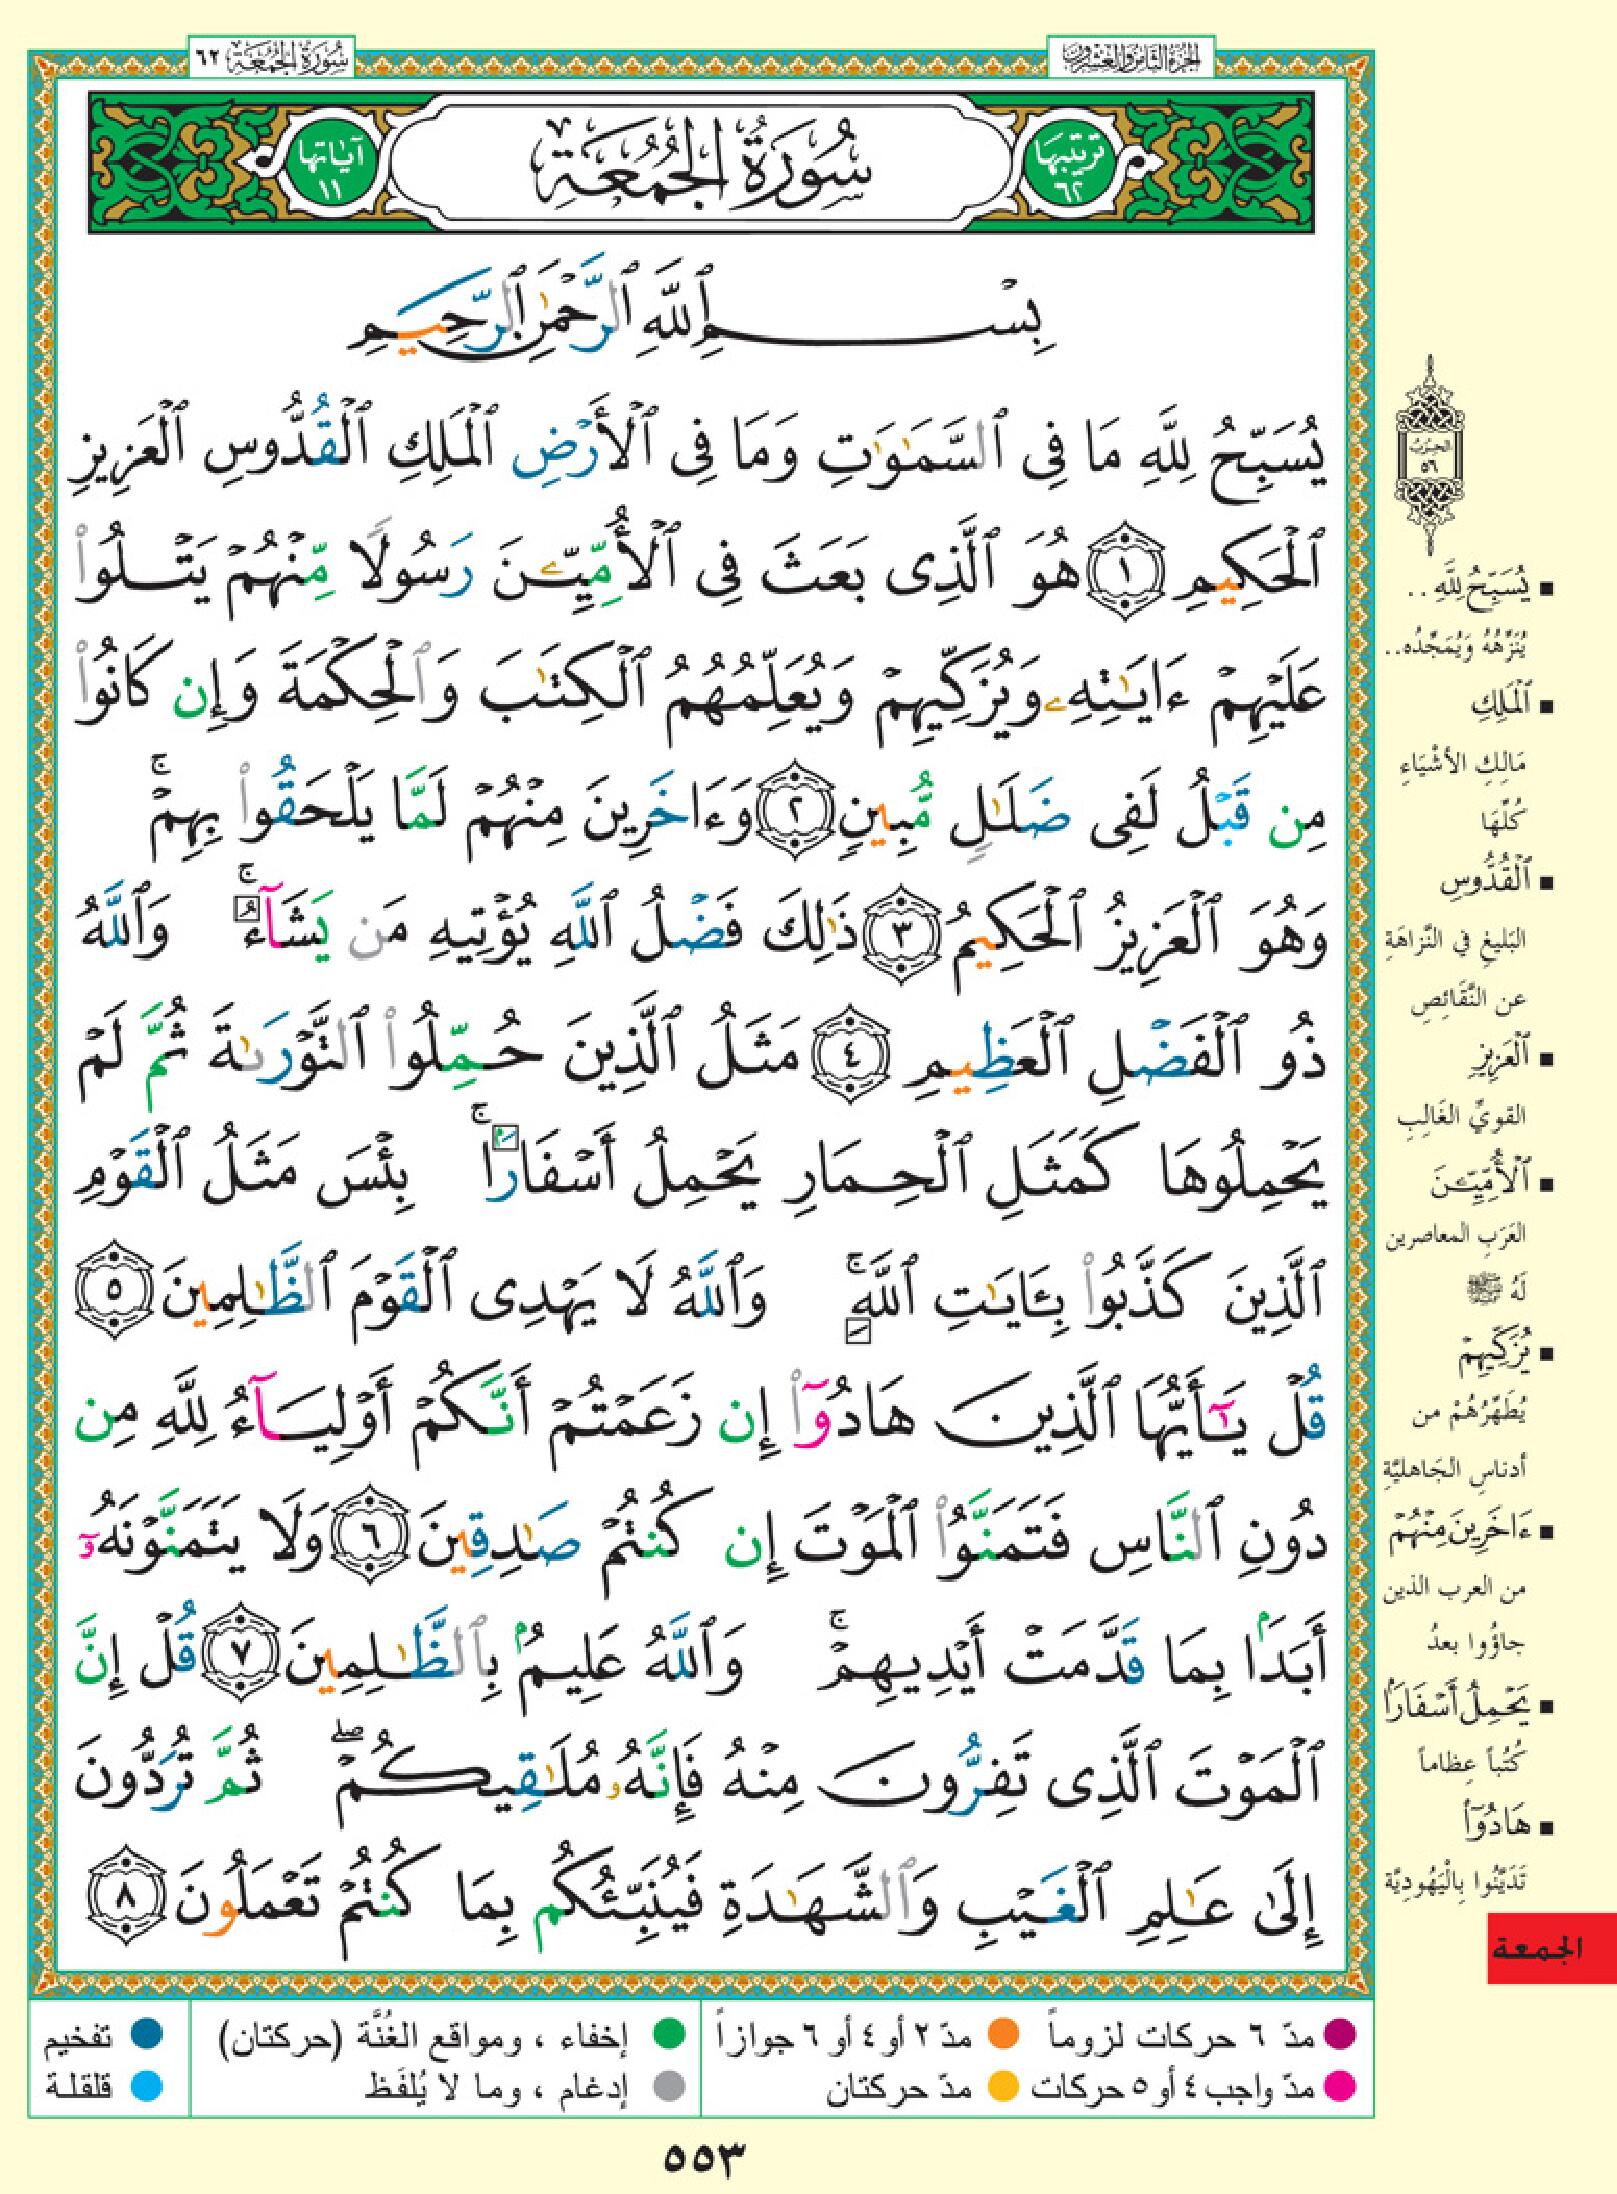 الجزء الثامن والعشرون
سورة الجمعة ٦٢
ترتيبها ٦٢
سُورَةُ الجُمُعَةِ
آياتها ١١
بِسْمِ ٱللَّهِ ٱلرَّحْمَٰنِ ٱلرَّحِيمِ
يُسَبِّحُ لِلَّهِ مَا فِى ٱلسَّمَٰوَٰتِ وَمَا فِى ٱلْأَرْضِ ٱلْمَلِكِ ٱلْقُدُّوسِ ٱلْعَزِيزِ
ٱلْحَكِيمِ ١ هُوَ ٱلَّذِى بَعَثَ فِى ٱلْأُمِّيِّۦنَ رَسُولًا مِّنْهُمْ يَتْلُوا۟
عَلَيْهِمْ ءَايَٰتِهِۦ وَيُزَكِّيهِمْ وَيُعَلِّمُهُمُ ٱلْكِتَٰبَ وَٱلْحِكْمَةَ وَإِن كَانُوا۟
مِن قَبْلُ لَفِى ضَلَٰلٍ مُّبِينٍ ٢ وَءَاخَرِينَ مِنْهُمْ لَمَّا يَلْحَقُوا۟ بِهِمْ ۚ
وَهُوَ ٱلْعَزِيزُ ٱلْحَكِيمُ ٣ ذَٰلِكَ فَضْلُ ٱللَّهِ يُؤْتِيهِ مَن يَشَآءُ ۚ وَٱللَّهُ
ذُو ٱلْفَضْلِ ٱلْعَظِيمِ ٤ مَثَلُ ٱلَّذِينَ حُمِّلُوا۟ ٱلتَّوْرَىٰةَ ثُمَّ لَمْ
يَحْمِلُوهَا كَمَثَلِ ٱلْحِمَارِ يَحْمِلُ أَسْفَارًۢا ۚ بِئْسَ مَثَلُ ٱلْقَوْمِ
ٱلَّذِينَ كَذَّبُوا۟ بِـَٔايَٰتِ ٱللَّهِ ۚ وَٱللَّهُ لَا يَهْدِى ٱلْقَوْمَ ٱلظَّٰلِمِينَ ٥
قُلْ يَٰٓأَيُّهَا ٱلَّذِينَ هَادُوٓا۟ إِن زَعَمْتُمْ أَنَّكُمْ أَوْلِيَآءُ لِلَّهِ مِن
دُونِ ٱلنَّاسِ فَتَمَنَّوُا۟ ٱلْمَوْتَ إِن كُنتُمْ صَٰدِقِينَ ٦ وَلَا يَتَمَنَّوْنَهُۥٓ
أَبَدًۢا بِمَا قَدَّمَتْ أَيْدِيهِمْ ۚ وَٱللَّهُ عَلِيمٌۢ بِٱلظَّٰلِمِينَ ٧ قُلْ إِنَّ
ٱلْمَوْتَ ٱلَّذِى تَفِرُّونَ مِنْهُ فَإِنَّهُۥ مُلَٰقِيكُمْ ۖ ثُمَّ تُرَدُّونَ
إِلَىٰ عَٰلِمِ ٱلْغَيْبِ وَٱلشَّهَٰدَةِ فَيُنَبِّئُكُم بِمَا كُنتُمْ تَعْمَلُونَ ٨
الحزب ٥٦
■ يُسَبِّحُ لِلَّهِ ..
يُنَزِّهُهُ وَيُمَجِّدُه..
■ ٱلْمَلِكِ
مَالِكِ الأَشْيَاءِ
كُلِّهَا
■ ٱلْقُدُّوسِ
البَلِيغِ في النَّزاهَةِ
عن النَّقَائِصِ
■ ٱلْعَزِيزِ
القويِّ الغَالِبِ
■ ٱلْأُمِّيِّۦنَ
العَرَبِ المعاصرين
لَهُ ﷺ
■ يُزَكِّيهِمْ
يُطَهِّرُهُمْ من
أدناسِ الجَاهليَّةِ
■ ءَاخَرِينَ مِنْهُمْ
من العرب الذين
جاؤُوا بعدُ
■ يَحْمِلُ أَسْفَارًا
كُتُباً عِظاماً
■ هَادُوٓا۟
تَدَيَّنُوا بِالْيَهُودِيَّة
الجمعة
مدّ ٦ حركات لزوماً
مدّ ٢ أو ٤ أو ٦ جوازاً
إخفاء ، ومواقع الغُنَّة (حركتان)
تفخيم
مدّ واجب ٤ أو ٥ حركات
مدّ حركتان
إدغام ، وما لا يُلفَظ
قلقلة
٥٥٣